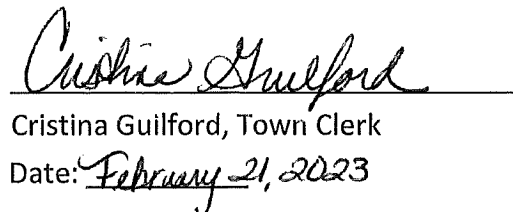 Cristina Guilford
Cristina Guilford, Town Clerk
Date: February 21, 2023